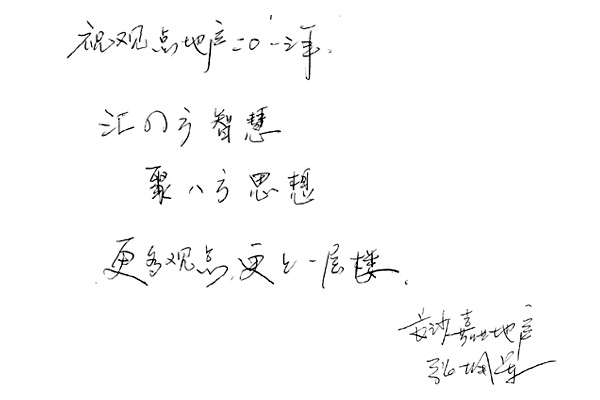 祝观点地产二0一二年.
汇四方智慧
聚八方思想
更多观点,更上一层楼.
长沙嘉业地产